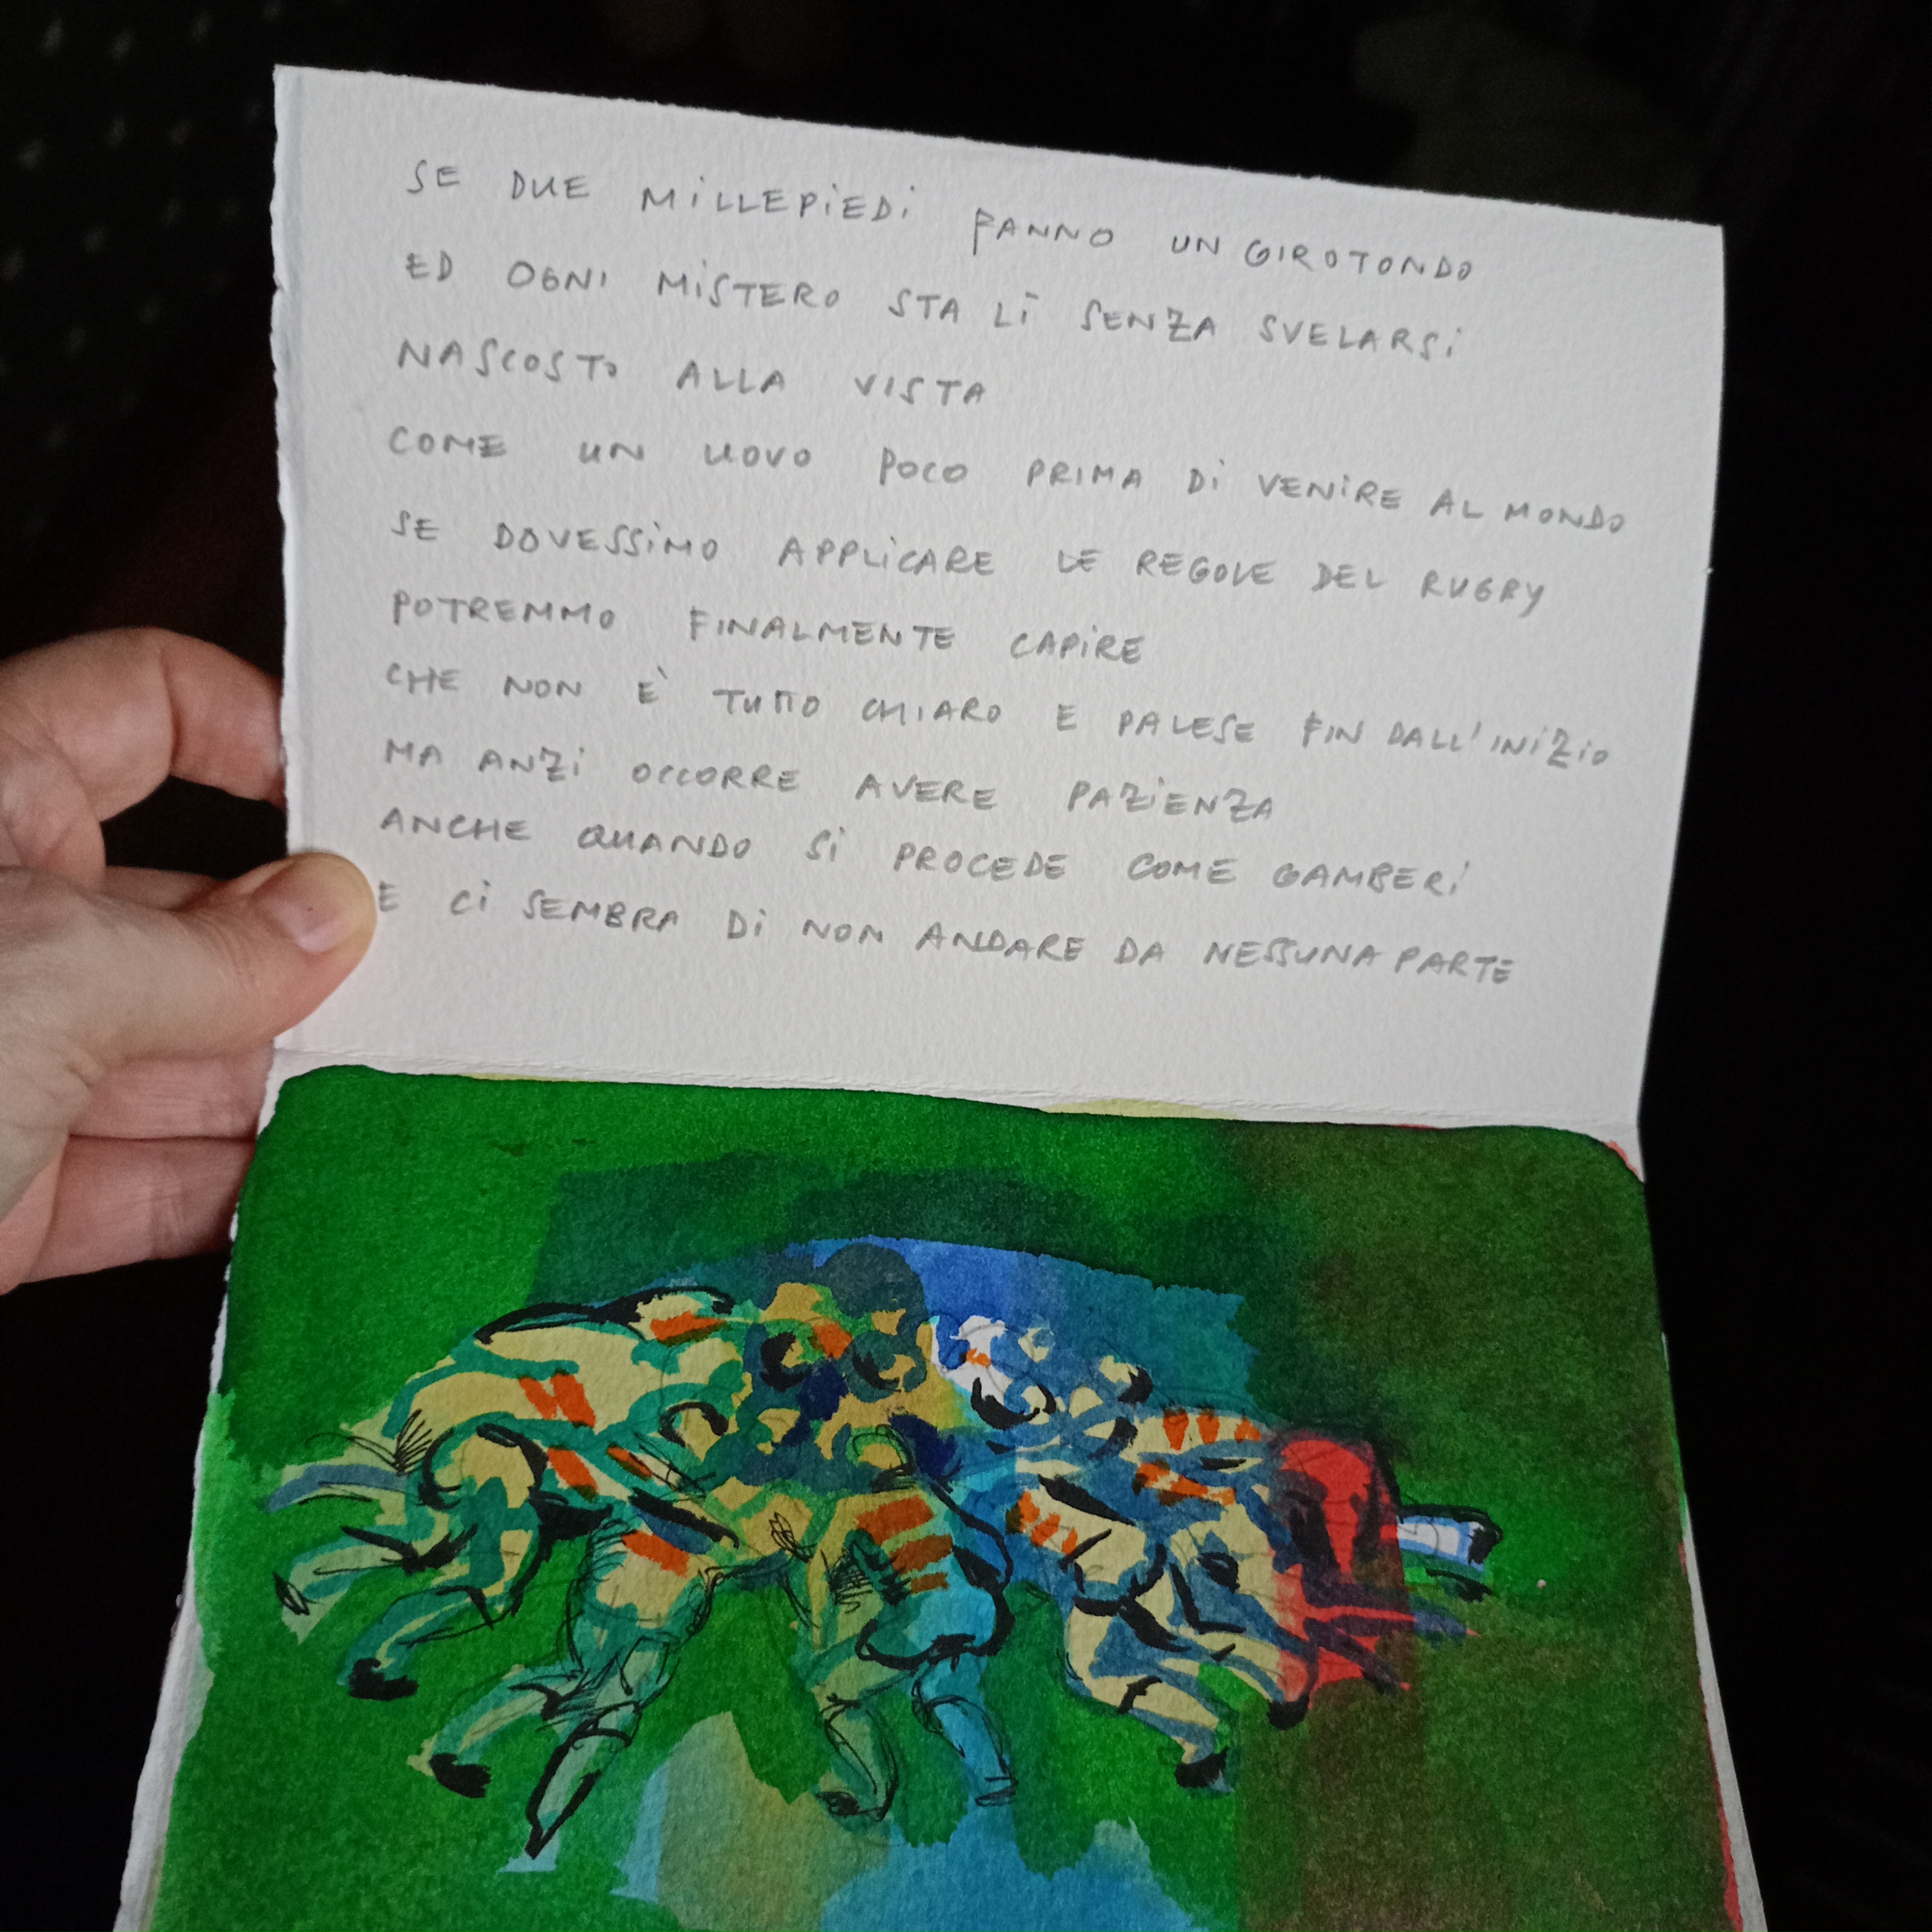 SE DUE MILLEPIEDI FANNO UN GIROTONDO
ED OGNI MISTERO STA LÌ SENZA SVELARSI
NASCOSTO ALLA VISTA
COME UN UOVO POCO PRIMA DI VENIRE AL MONDO
SE DOVESSIMO APPLICARE LE REGOLE DEL RUGBY
POTREMMO FINALMENTE CAPIRE
CHE NON È TUTTO CHIARO E PALESE FIN DALL'INIZIO
MA ANZI OCCORRE AVERE PAZIENZA
ANCHE QUANDO SI PROCEDE COME GAMBERI
E CI SEMBRA DI NON ANDARE DA NESSUNA PARTE